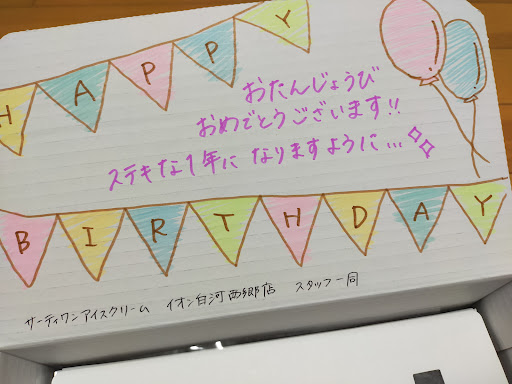 HAPPY
おたんじょうび
おめでとうございます!!
ステキな1年になりますように...
BIRTHDAY
サーティワンアイスクリーム イオン白河西郷店 スタッフ一同